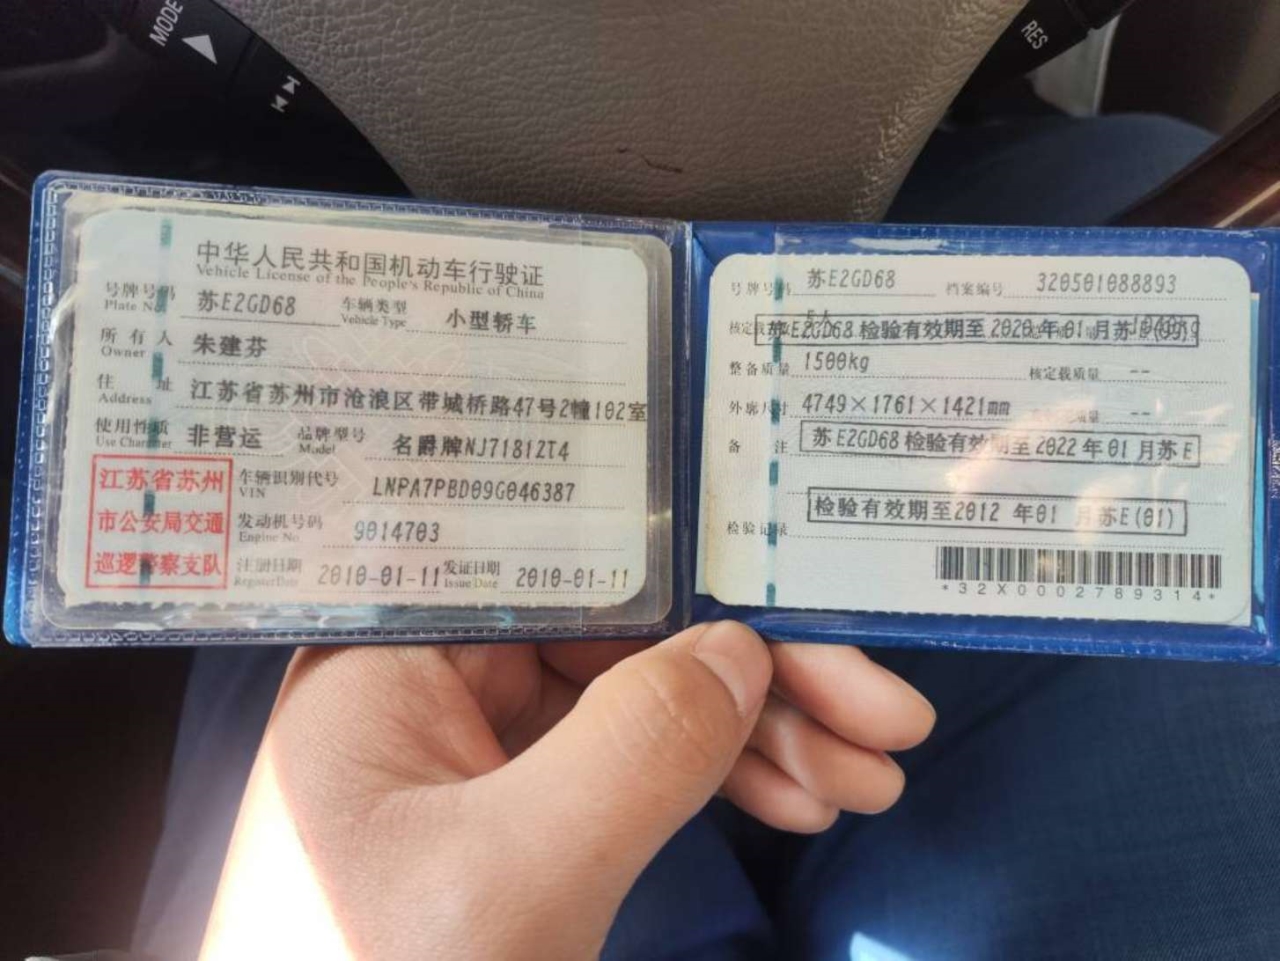 MODE
RES
中华人民共和国机动车行驶证
Vehicle License of the People's Republic of China
号牌号码 苏E2GD68 车辆类型 小型轿车
Plate No. Vehicle Type
所有人 朱建芬
Owner
住址 江苏省苏州市沧浪区带城桥路47号2幢102室
Address
使用性质 非营运 品牌型号 名爵牌NJ7181ZT4
Use Character Model
江苏省苏州
市公安局交通
巡逻警察支队
车辆识别代号 LNPA7PBD09G046387
VIN
发动机号码 9014703
Engine No.
注册日期 2010-01-11 发证日期 2010-01-11
Register Date Issue Date
号牌号码 苏E2GD68 档案编号 320501088893
核定载
苏E2GD68 检验有效期至 2020 年 01 月苏E(05)
整备质量 1500kg 核定载质量 --
外廓尺寸 4749×1761×1421mm 质量 --
备注 苏E2GD68 检验有效期至 2022 年 01 月苏E
检验有效期至2012 年01 月苏E(01)
检验记录
*32X0002789314*